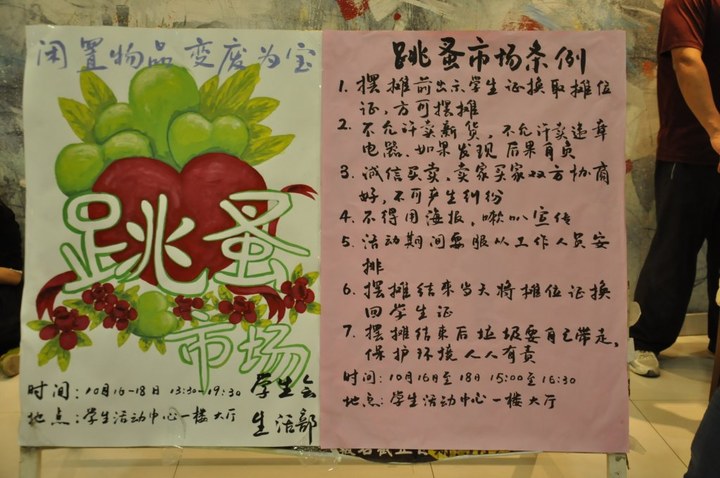 闲置物品 变废为宝
跳蚤
市场
时间：10月16-18日 13:30-19:30
地点：学生活动中心一楼大厅
学生会
生活部
跳蚤市场条例
1. 摆摊前出示学生证换取摊位
证，方可摆摊
2. 不允许卖新货，不允许卖违章
电器，如果发现后果自负
3. 诚信买卖，卖家买家双方协商
好，不可产生纠纷
4. 不得用海报，喇叭宣传
5. 活动期间要服从工作人员安
排
6. 摆摊结束当天将摊位证换
回学生证
7. 摆摊结束后垃圾要自己带走，
保护环境人人有责
时间：10月16日至18日 15:00至16:30
地点：学生活动中心一楼大厅